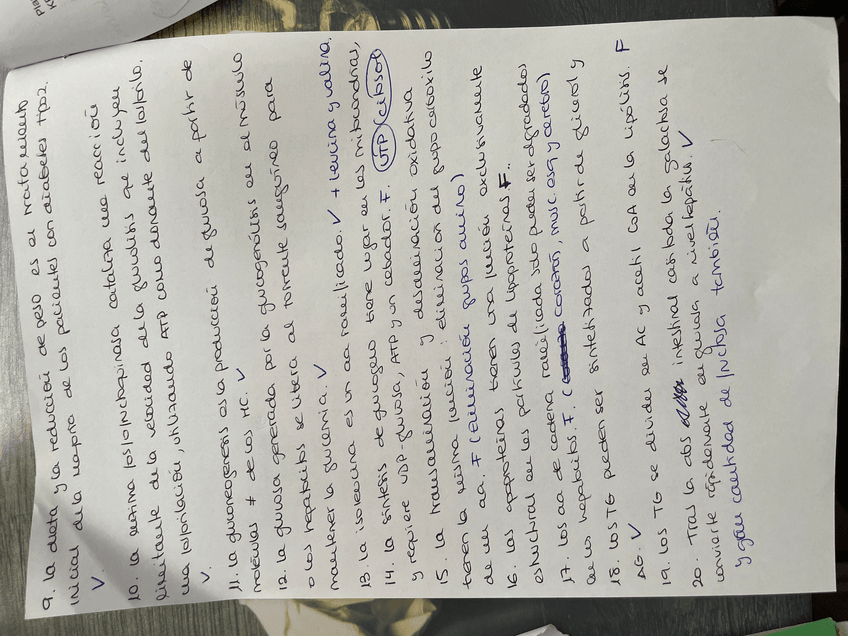 Pla
9. La dieta y la reducción de peso es el tratamiento
inicial de la mayoría de los pacientes con diabetes tipo 2.
V.
10. La enzima fosfofructoquinasa cataliza una reacción
limitante de la velocidad de la glucólisis que incluye
una fosforilación, utilizando ATP como donante del fosforilo.
V.
11. La gluconeogénesis es la producción de glucosa a partir de
moléculas ≠ de los HC. V
12. La glucosa generada por la glucogenólisis en el músculo
o los hepatocitos se libera al torrente sanguíneo para
mantener la glucemia. V
13. La isoleucina es un aa ramificado. V + leucina y valina.
14. La síntesis de glucógeno tiene lugar en las mitocondrias,
y requiere UDP-glucosa, ATP y un cebador. F. UTP citosol
15. La transaminación y desaminación oxidativa
tienen la misma función: eliminación del grupo carboxilo
de un aa. F (eliminación grupos amino)
16. Las apoproteínas tienen una función exclusivamente
estructural en las partículas de lipoproteínas F.
17. Los aa de cadena ramificada solo pueden ser degradados
en los hepatocitos. F. (corazón, musc. esq y cerebro)
18. Los TG pueden ser sintetizados a partir de glicerol y
AG. V
19. Los TG se dividen en AC y acetil CoA en la lipólisis. F
20. Tras la abs intestinal casi toda la galactosa se
convierte rápidamente en glucosa a nivel hepático. V
y gran cantidad de fructosa también.